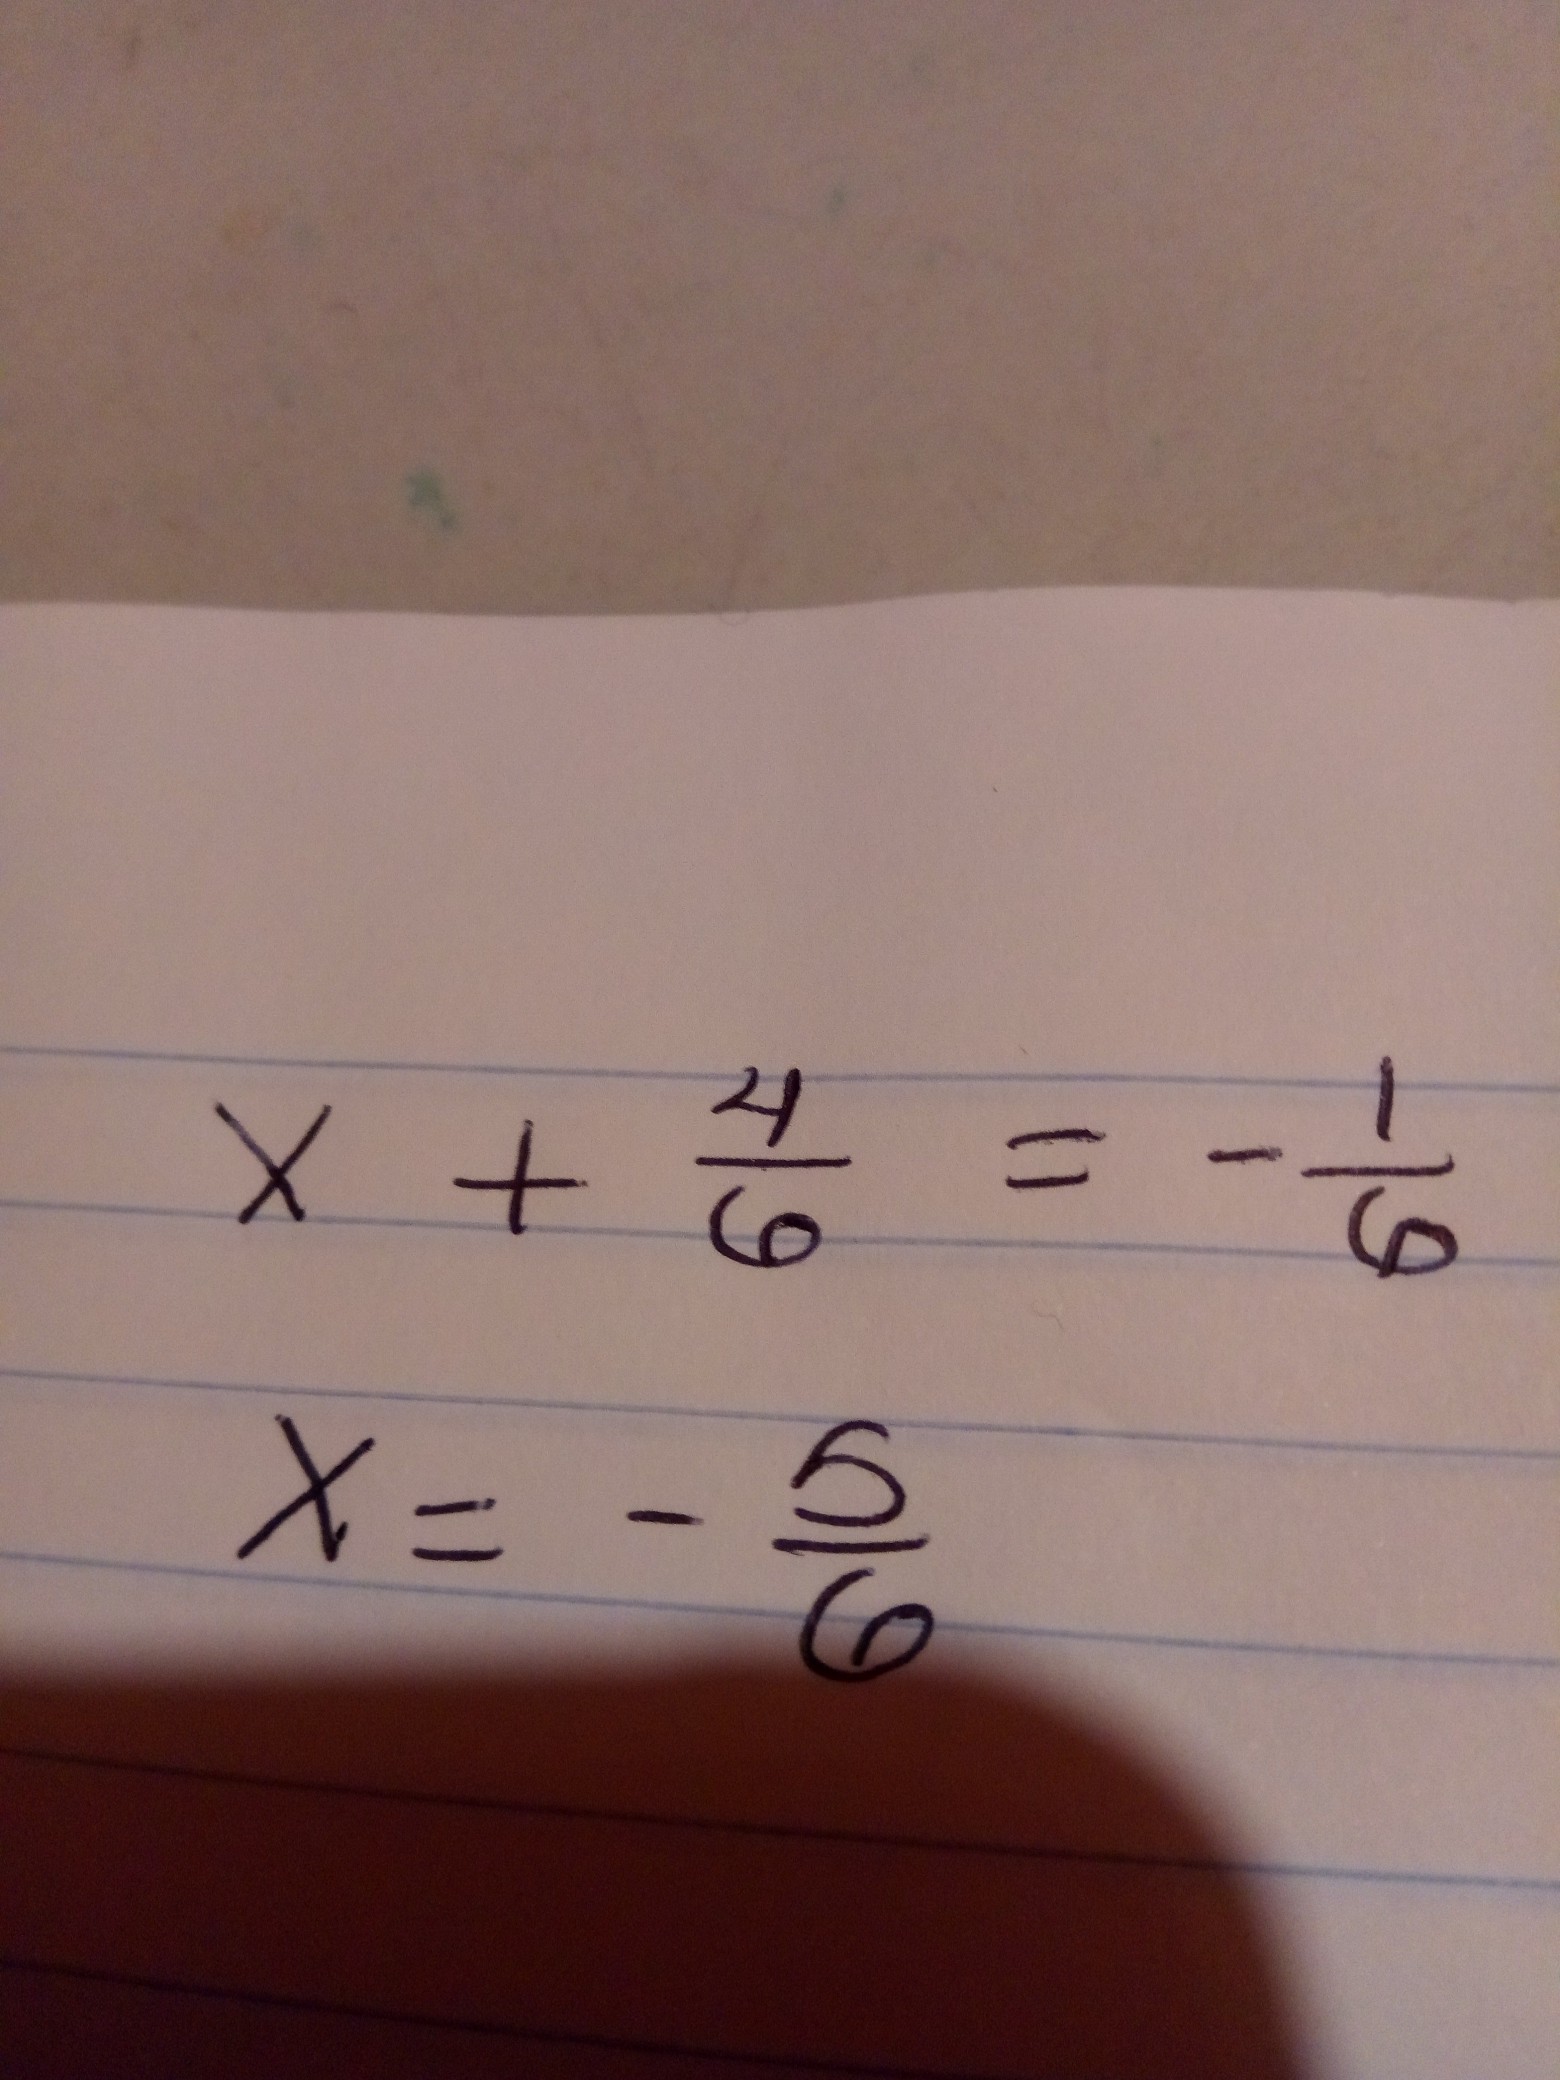 x + 4/6 = - 1/6
x = - 5/6